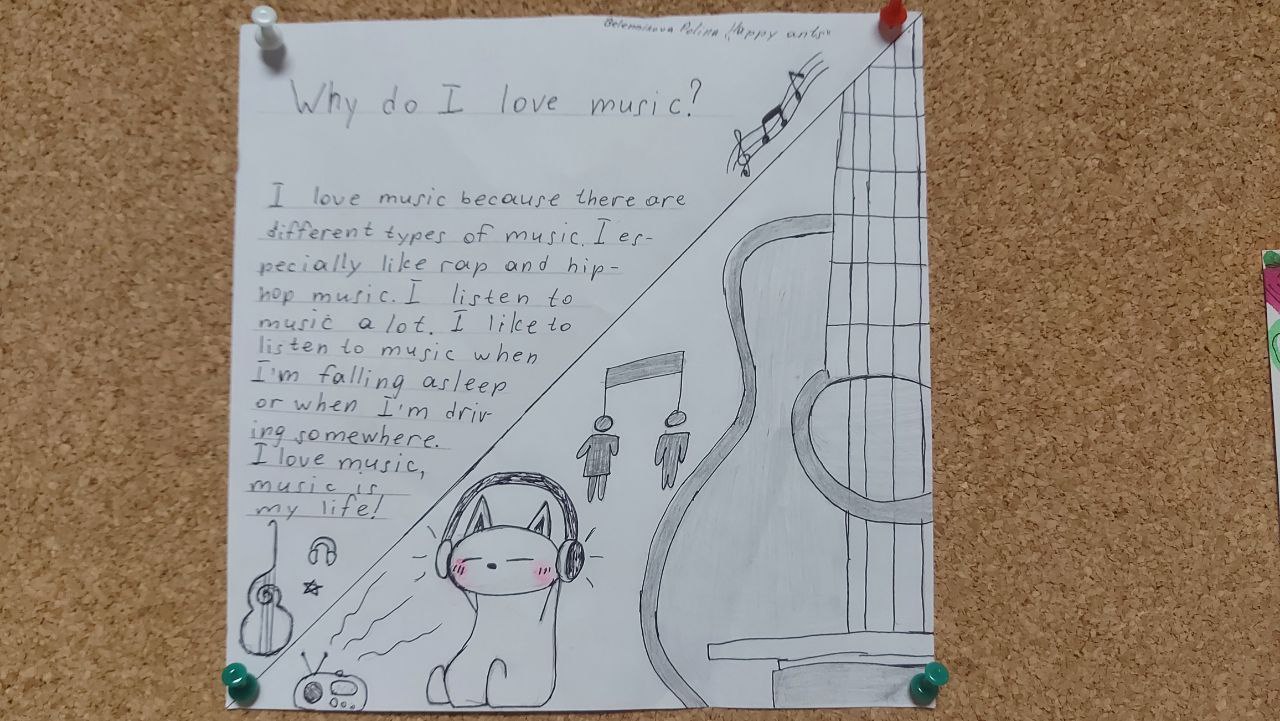 Polina "Happy ants"
Why do I love music?
I love music because there are
different types of music. I es-
pecially like rap and hip-
hop music. I listen to
music a lot. I like to
listen to music when
I'm falling asleep
or when I'm driv-
ing somewhere.
I love music,
music is
my life!